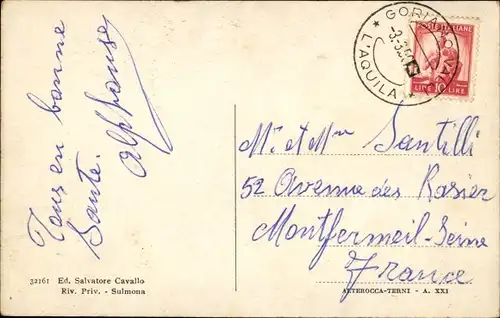 Tous en bonne
Sante.
Alphonse
GORIANO VAL
* L'AQUILA *
ITALIANE
LIRE 10 LIRE
Mr et Mme Santilli
52 Avenue des Rosier
Montfermeil-Seine
France
32161 Ed. Salvatore Cavallo
Riv. Priv. - Sulmona
ALTEROCCA-TERNI - A. XXI